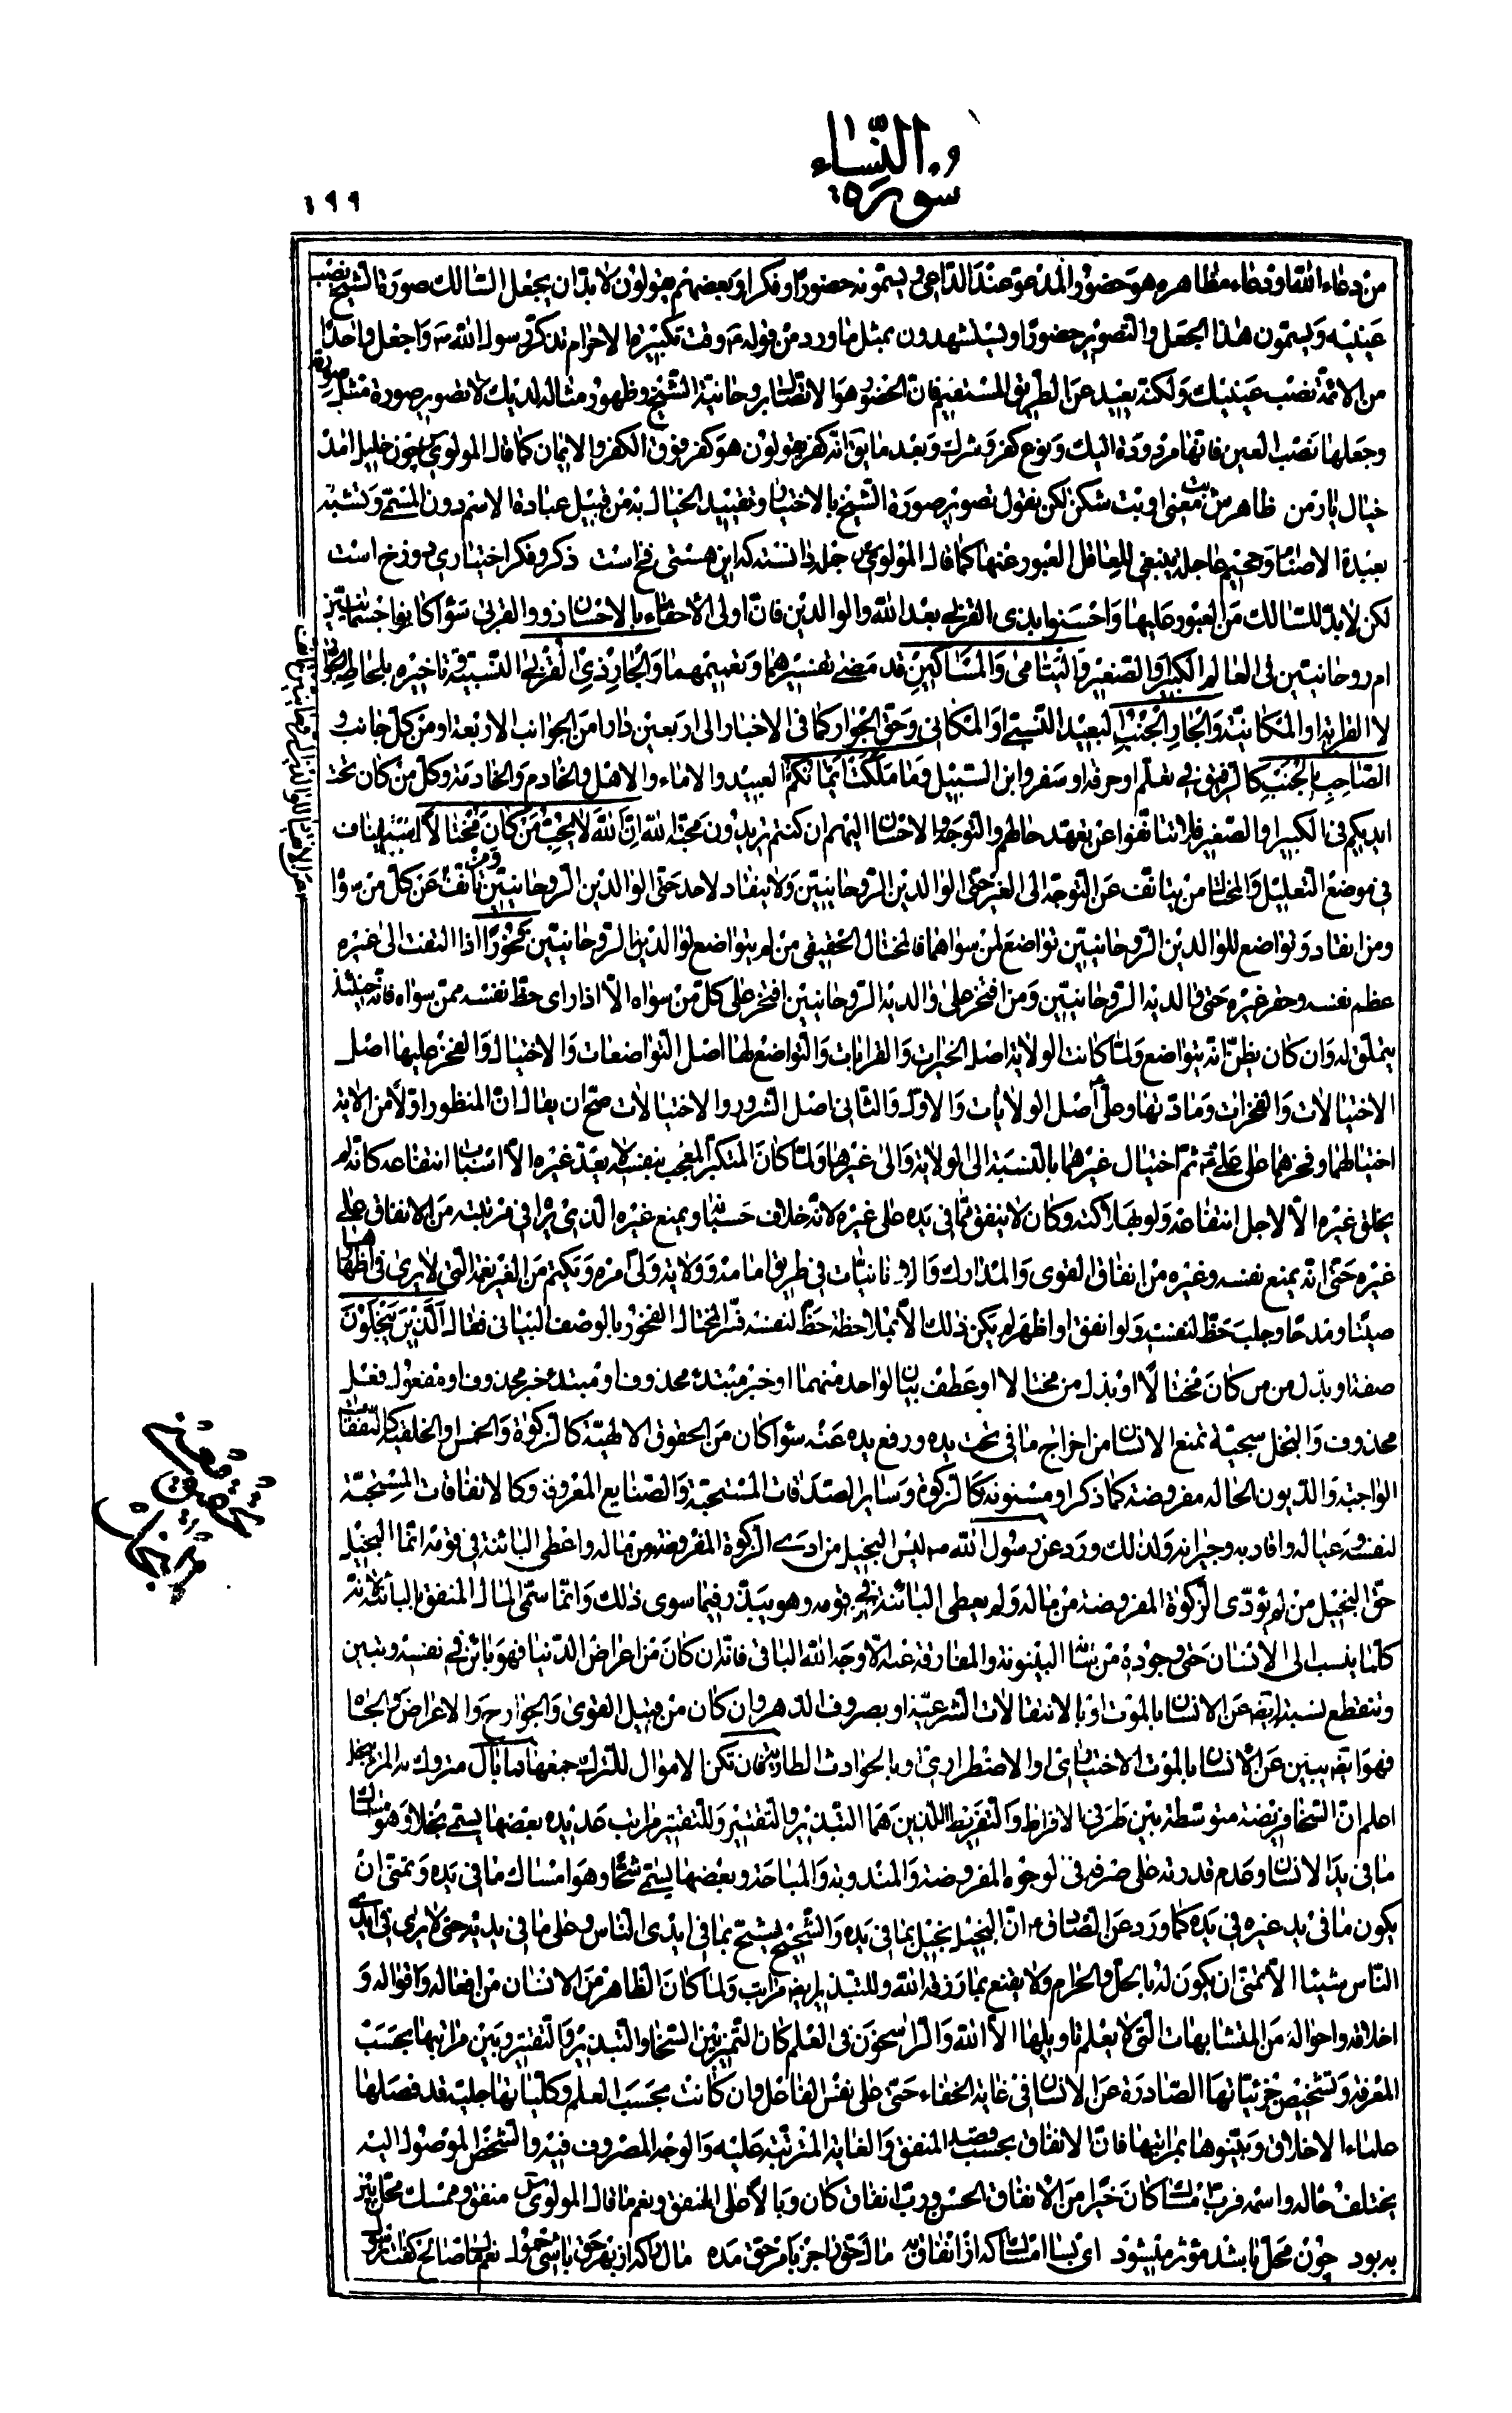 سورة النساء
١٩٩
من دعاء الله او دعاء مظاهره هو حضور المدعو عند الداعى ويسمونه حضورا وفكرا وبعضهم يقولون لا بد ان يجعل السالك صورة الشيخ نصب
عينيه ويسمون هذا الجعل والتصوير حضورا ويستشهدون بمثل ما ورد من قوله وقت تكبيرة الاحرام تذكر رسول الله ص واجعل واحدا
من الائمة نصب عينيك ولكنه بعيد عن الطريق المستقيم فان الحضور هو الاتصال بروحانية الشيخ وظهور مثاله لديك لا تصوير صورة مثل صورته
وجعلها نصب العين فانها مردودة اليك ونوع كفر وشرك وبعد ما يق انه كفر يقولون هو كفر فوق الكفر والايمان كما قال المولوى چون خليل آمد
خيال يار من ظاهرش بت معنى او بت شكن لكن نقول تصوير صورة الشيخ بالاختيار وتقييد الخيال به من قبيل عبادة الاسم دون المسمى وتشبه
بعبدة الاصنام وجحيم عاجلة ينبغى للعاقل العبور عنها كما قال المولوى جمله دانسته كه اين هستى فخ است ذكر وفكر اختيارى دوزخ است
لكن لا بد للسالك من العبور عليها واحسنوا بذى القربى بعد الله والوالدين فان اولى الاحقاء بالاحسان ذوو القربى سواء كانوا جسمانيين
ام روحانيين فى العالم الكبير والصغير واليتامى والمساكين قد مضى تفسيرهما وتعميمهما والجار ذى القربى النسبية تاخيره بلحاظ الجوار
لا القرابة او المكانية والجار الجنب البعيد النسبى او المكانى وحق الجوار كما فى الاخبار الى اربعين دارا من الجوانب الاربعة او من كل جانب و
الصاحب بالجنب كالرفيق فى تعلم او حرفة او سفر وابن السبيل وما ملكت ايمانكم العبيد والاماء والاهل والخادم والخادمة وكل من كان تحت
ايديكم فى الكبير والصغير فلا تانفوا عن تعهد حالهم والتوجه والاحسان اليهم ان كنتم تريدون محبة الله ان الله لا يحب من كان مختالا استيناف
فى موضع التعليل والمختال من يتانف عن التوجه الى الغير حتى الوالدين الروحانيين ولا ينقاد لاحد حتى الوالدين الروحانيين ومن تانف عن كل من سواهما
ومن انقاد وتواضع للوالدين الروحانيين تواضع لمن سواهما فالمختال الحقيقى من لم يتواضع لوالديه الروحانيين فخورا اذا التفت الى غيره
عظم نفسه وحقر غيره حتى والديه الروحانيين ومن افتخر على والديه الروحانيين افتخر على كل من سواه الا اذا راى حظ نفسه ممن سواه فانه حينئذ
يتملق له وان كان يظن انه يتواضع ولما كانت الولاية اصل الخيرات والقرابات والتواضع لها اصل التواضعات والاختيال والفخر عليها اصل
الاختيالات والفخرات ومادتها وعلى ع اصل الولايات والاول والثانى اصل الشرور والاختيالات صح ان يقال ان المنظور اولا من الاية
اختيالهما وفخرهما على على ع ثم اختيال غيرهما بالنسبة الى الولاية والى غيرها ولما كان المتكبر المعجب بنفسه لا يعد غيره الا اسباب انتفاعه كانه لم
يخلق غيره الا لاجل انتفاعه ولو بهلاكته وكان لا ينفق مما فى يده على غيره لانه خلاف حسبانه ويمنع غيره الذى يراه فى مرتبته من الانفاق على
غيره حتى انه يمنع نفسه وغيره من انفاق القوى والمدارك والانانيات فى طريق امامه وولاية ولى امره ويكتم من الغير نعمه التى لا يرى فى اظهارها
صيتا ومدحا وجلب حظ لنفسه ولو انفق او اظهر لم يكن ذلك الا بملاحظة حظ لنفسه فسر المختال الفخور بالوصف البيانى فقال الذين يبخلون
صفة او بدل من من كان مختالا او بدل من مختالا او عطف بيان لواحد منهما او خبر مبتدء محذوف او مبتدء خبر محذوف او مفعول فعل
محذوف والبخل سجية تمنع الانسان من اخراج ما فى تحت يده ورفع يده عنه سواء كان من الحقوق الالهية كالزكوة والخمس او الخلقية كالنفقات
الواجبة والديون الحالة مفروضة كما ذكر او مسنونة كالزكوة وساير الصدقات المستحبة والصنايع المعروفة وكالانفاقات المستحبة
لنفسه وعياله واقاربه وجيرانه ولذلك ورد عن رسول الله ص ليس البخيل من ادى الزكوة المفروضة من ماله واعطى البائنة فى قومه انما البخيل
حق البخيل من لم يؤدى الزكوة المفروضة من ماله ولم يعط البائنة فى قومه وهو يبذر فيما سوى ذلك وانما سمى المال المنفق بالبائنة لانه
كلما ينسب الى الانسان حتى وجوده من شانه البينونة والمفارقة عنه الا وجه الله الباقى فانه ان كان من اعراض الدنيا فهو بائن فى نفسه ويبين
وتنقطع نسبته ايضا عن الانسان بالموت او بالانتقالات الشرعية او بصروف الدهر وان كان من قبيل القوى والجوارح والاعراض والجاه
فهو ايضا يبين عن الانسان بالموت الاختيارى او الاضطرارى او بالحوادث الطارية فان تكن الاموال للترك جمعها فما بال متروك به المرء يبخل
اعلم ان السخا فريضة متوسطة بين طرفى الافراط والتفريط اللذين هما التبذير والتقتير وللتقتير مراتب عديدة بعضها يسمى بخلا وهو امساك
ما فى يد الانسان وعدم قدرته على صرفه فى الوجوه المفروضة والمندوبة والمباحة وبعضها يسمى شحا وهو امساك ما فى يده وتمنى ان
يكون ما فى يد غيره فى يده كما ورد عن الصادق ع ان البخيل يبخل بما فى يده والشحيح يشح بما فى ايدى الناس وعلى ما فى يديه حتى لا يرى فى ايدى
الناس شيئا الا تمنى ان يكون له بالحل والحرام ولا يقنع بما رزقه الله وللتبذير ايضا مراتب ولما كان الظاهر من الانسان من افعاله واقواله و
اخلاقه واحواله من المتشابهات التى لا يعلم تاويلها الا الله والراسخون فى العلم كان التميز بين السخا والتبذير والتقتير وبين مراتبها بحسب
المعرفة وتشخيص جزئياتها الصادرة عن الانسان فى غاية الخفاء حتى على نفس الفاعل وان كانت بحسب العلم وكلياتها جلية قد فصلها
علماء الاخلاق وبينوها بمراتبها فان الانفاق بحسب قصد المنفق والغاية المترتبة عليه والوجه المصروف فيه والشخص الموصول اليه
يختلف حاله واسمه فرب امساك كان خيرا من الانفاق الحسن ورب انفاق كان وبالا على المنفق ونعم ما قال المولوى منفق وممسك محل بين
به بود چون محل باشد مؤثر ميشود اى بسا امساك كه از انفاق به مال حق را جز بامر حق مده مال را كه از بهر حق باشى حمول نعم مال صالح گفت آن رسول